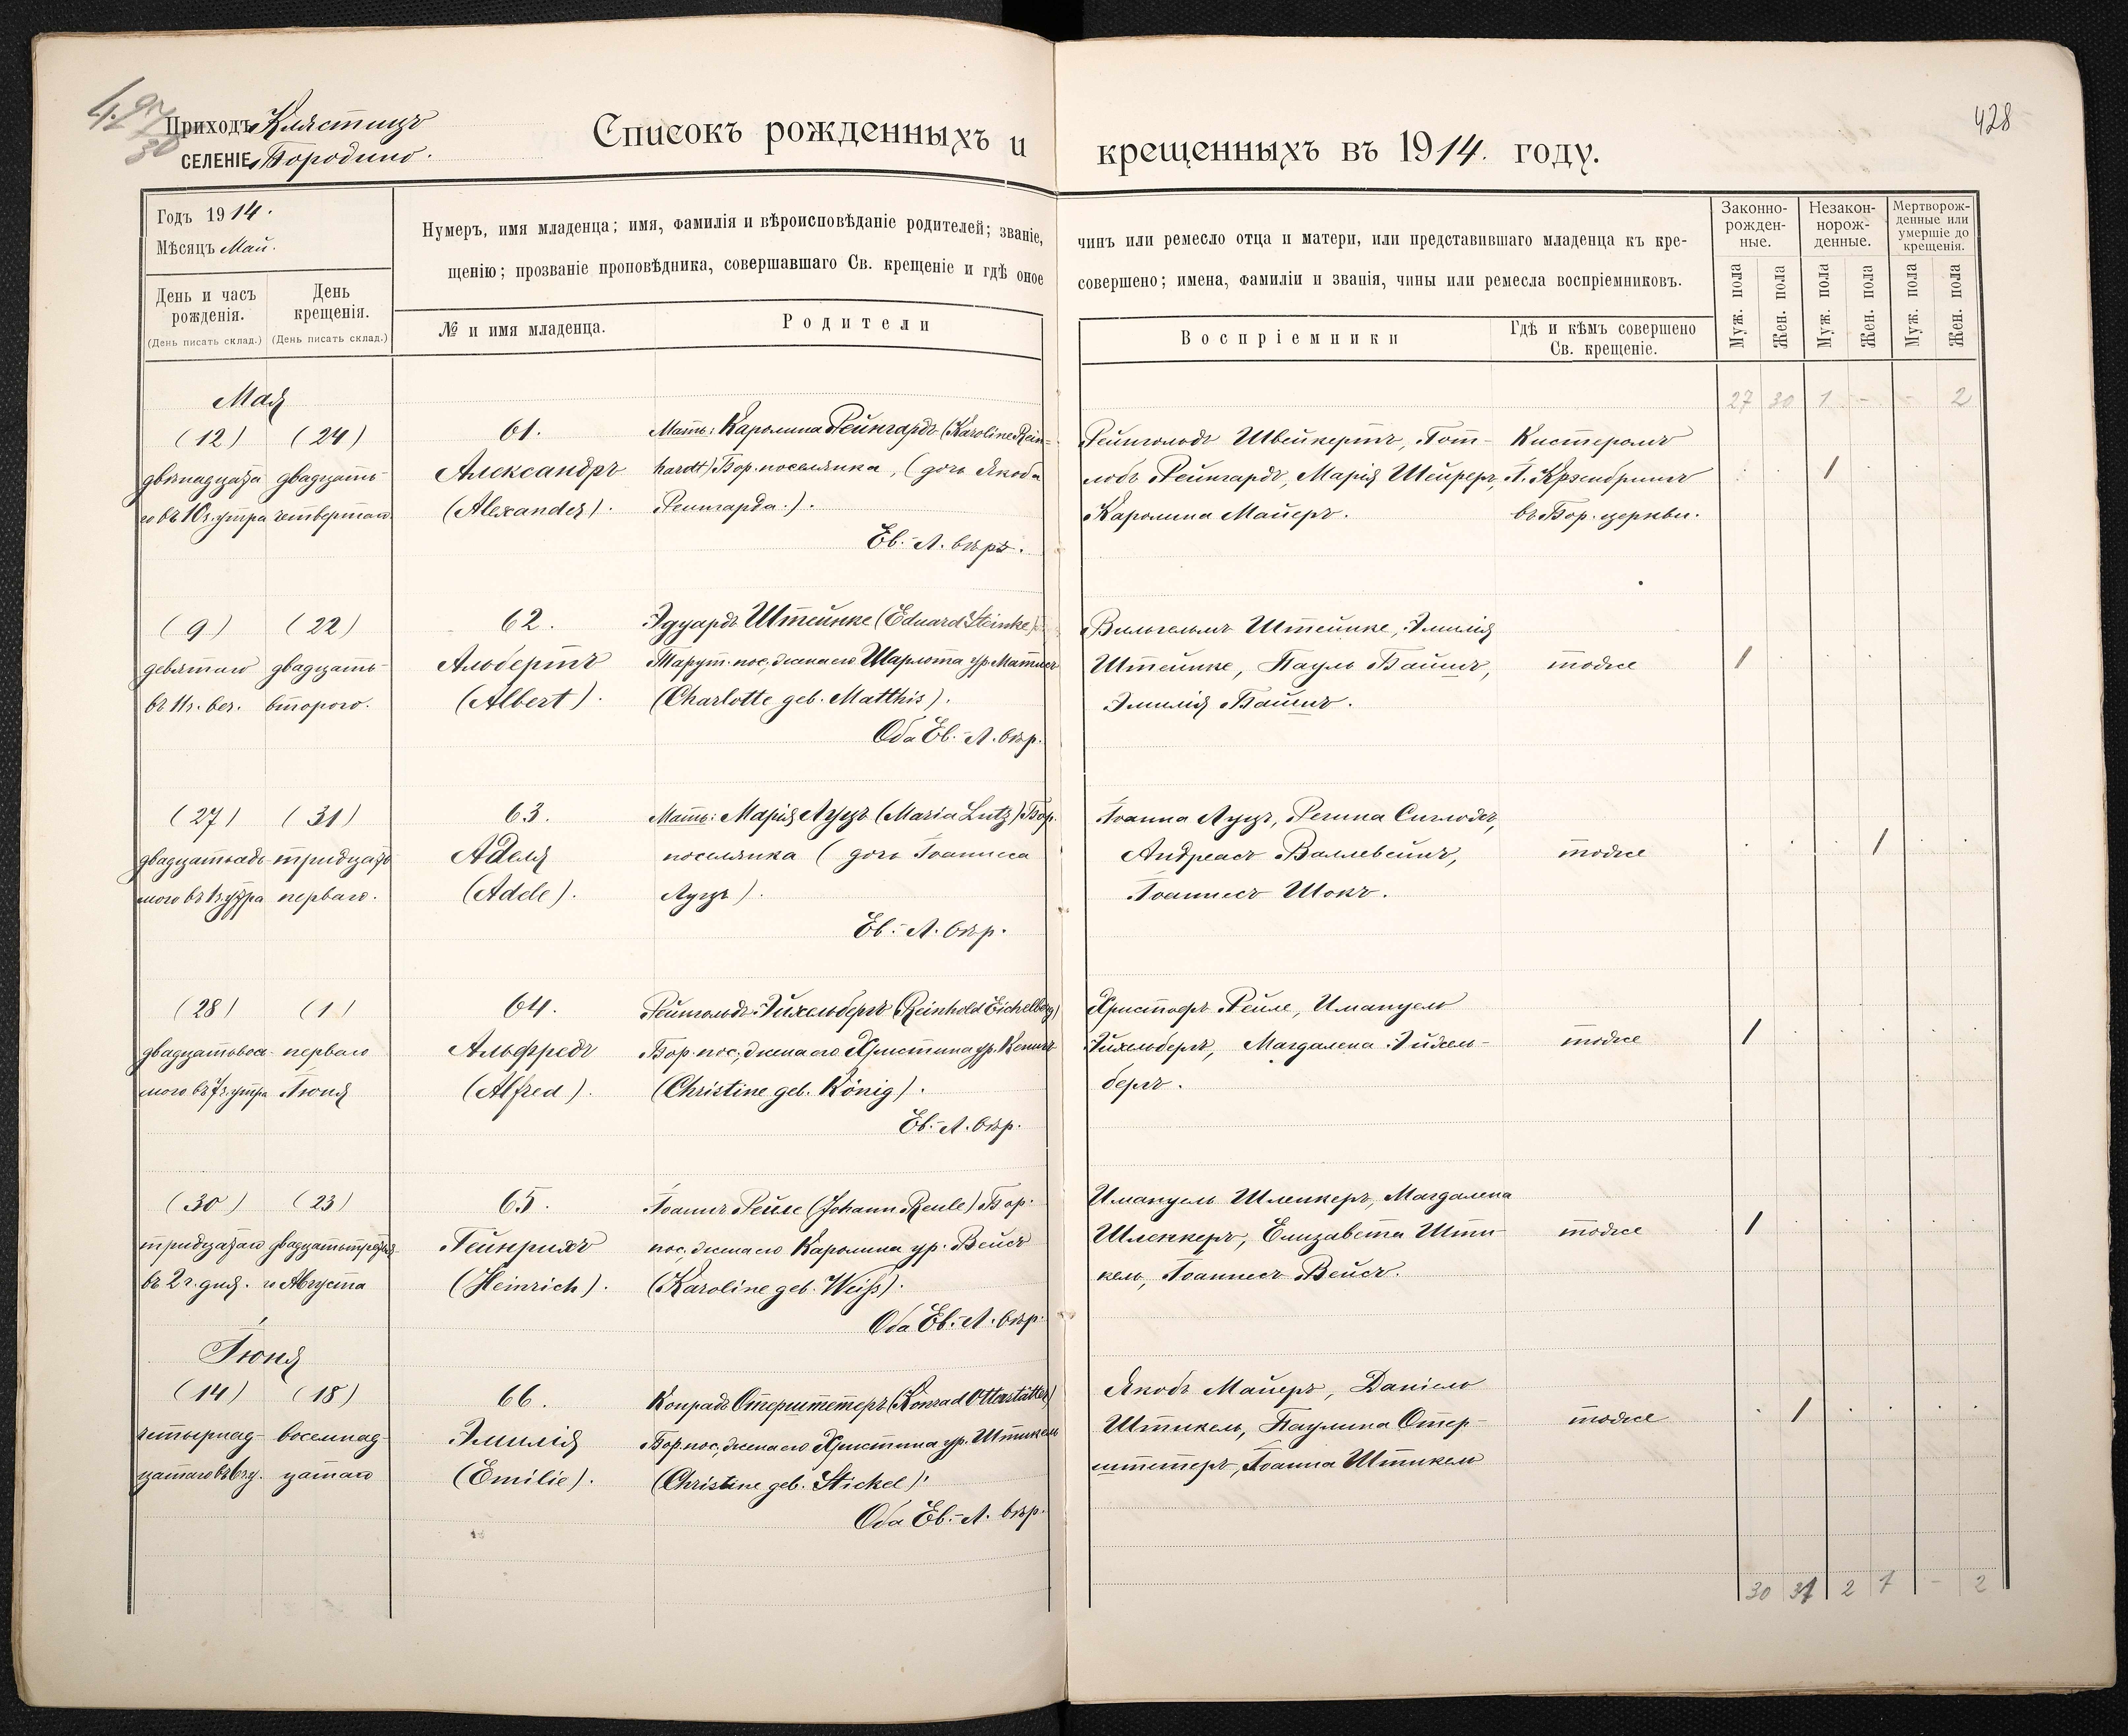 428
Приходъ Клястицъ
СЕЛЕНІЕ Бородино.
Списокъ рожденныхъ и крещенныхъ въ 1914. году.
Годъ 1914.
Мѣсяцъ Май.
День и часъ рожденія.
(День писать склад.)
День крещенія.
(День писать склад.)
Нумеръ, имя младенца; имя, фамилія и вѣроисповѣданіе родителей; званіе, чинъ или ремесло отца и матери, или представившаго младенца къ кре-
щенію; прозваніе проповѣдника, совершавшаго Св. крещеніе и гдѣ оное совершено; имена, фамиліи и званія, чины или ремесла воспріемниковъ.
№ и имя младенца.
Родители
Воспріемники
Гдѣ и кѣмъ совершено Св. крещеніе.
Законно-
рожден-
ные.
Незакон-
норож-
денные.
Мертворож-
денные или
умершіе до
крещенія.
Муж. пола
Жен. пола
Муж. пола
Жен. пола
Муж. пола
Жен. пола
27 30 1 - - 2
Мая
(12) (24)
двѣнадцата двадцать
го въ 10 ч. утра четвертаго
61.
Александръ
(Alexander).
Мать: Каролина Рейнгардъ (Karoline Rein-
hardt) Бор. поселянка, (дочь Якоба
Рейнгарда.).
Ев.-Л. вѣры.
Рейнгольдъ Швейкертъ, Гот-
либъ Рейнгардъ, Марія Шейреръ,
Каролина Майеръ.
Кистеромъ
въ Бор. церкви.
1
(9) (22)
девятаго двадцать
въ 11 ч. веч. второго.
62.
Альбертъ
(Albert).
Эдуардъ Штейнке (Eduard Steinke)
Тарут. пос, жена его Шарлота ур. Матисъ
(Charlotte geb. Matthis).
Оба Ев.-Л. вѣр.
Вильгельмъ Штейнке, Эмилія
Штейнке, Пауль Башъ,
Эмилія Башъ.
тоже
1
(27) (31)
двадцатьседь- тридцать
мого въ 1 ч. утра перваго.
63.
Аделя
(Adele).
Мать: Марія Лутцъ (Maria Lutz) Бор.
поселянка (дочь Іоаннеса
Лутцъ).
Ев.-Л. вѣр.
Іоанна Лутцъ, Регина Сиглохъ,
Андреасъ Валлевейнъ,
Іоаннесъ Шокъ.
тоже
1
(28) (1)
двадцатьвось- перваго
мого въ 7 ч. утра Іюня
64.
Альфредъ
(Alfred).
Рейнгольдъ Эйхельбергъ (Reinhold Eichelberg)
Бор. пос, жена его Христина ур. Кенигъ
(Christine geb. König).
Ев.-Л. вѣр.
Христофъ Рейле, Имануель
Эйхельбергъ, Магдалена Эйхель-
бергъ.
тоже
1
(30) (23)
тридцатаго двадцатьтретья-
въ 2 ч. дня. го Августа
65.
Гейнрихъ
(Heinrich).
Іоаннъ Рейле (Johann Reule) Бор.
пос, жена его Каролина ур. Вейсъ
(Karoline geb. Weiß).
Оба Ев.-Л. вѣр.
Имануель Шленкеръ, Магдалена
Шленкеръ, Елизавета Шти-
кель, Іоаннесъ Вейсъ.
тоже
1
Іюня
(14) (18)
четырнад- восемнад-
цатаго въ 6 ч. у. цатаго
66.
Эмилія
(Emilie).
Конрадъ Отерштетеръ (Konrad Otterstätter)
Бор. пос, жена его Христина ур. Штикель
(Christine geb. Stickel).
Оба Ев.-Л. вѣр.
Якобъ Майеръ, Даніель
Штикель, Паулина Отер-
штетеръ, Іоанна Штикель
тоже
1
30 31 2 1 - 2